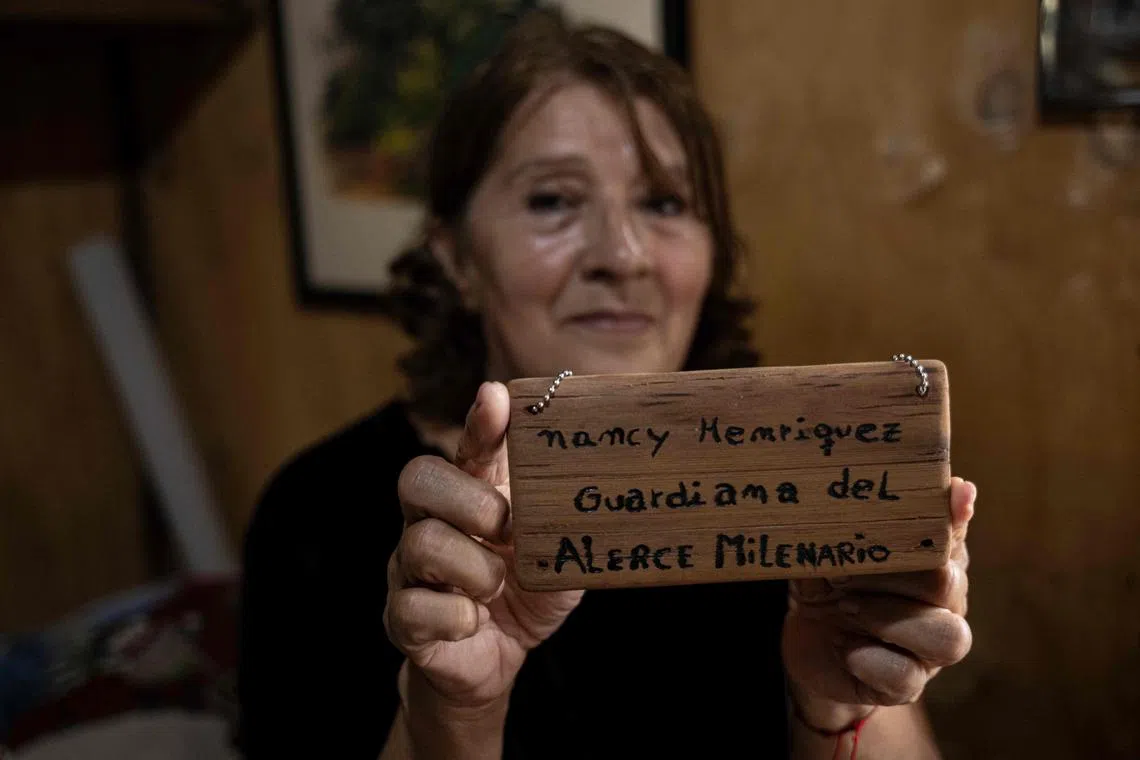 nancy Henriquez
Guardiana del
ALERCE MiLENARiO